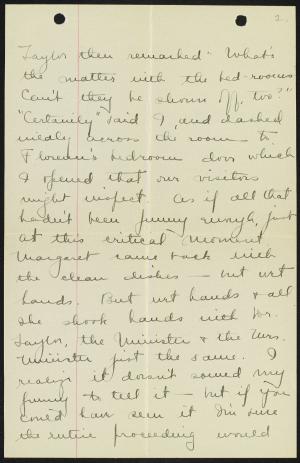 2.
Taylor then remarked "What's
the matter with the bed-rooms
Can't they be shown off, too?"
"Certainly" said I, and dashed
madly across the room to
Florence's bedroom door which
I opened that our visitors
might inspect. As if all that
hadn't been funny enough, just
at this critical moment
Margaret came back with
the clean dishes — but wet
hands. But wet hands & all
she shook hands with Dr.
Taylor, the Minister & the Mrs.
Minister just the same. I
realize it doesn't sound my
funny to tell it — but if you
could have seen it I'm sure
the entire proceeding would